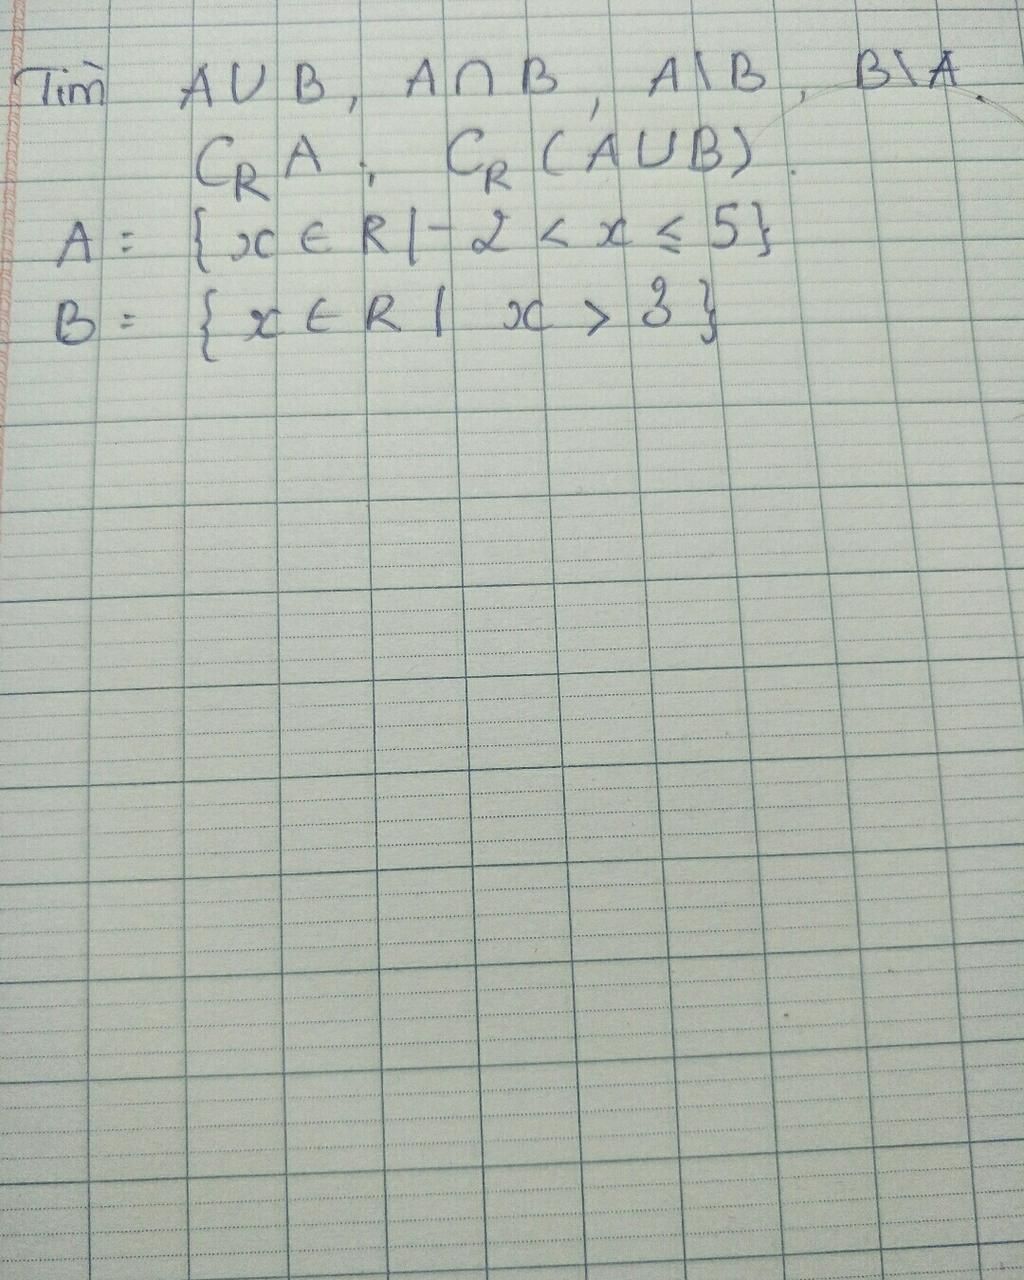 Tìm A∪B, A∩B, A\B, B\A.
C_R A, C_R (A∪B).
A = {x ∈ R | -2 < x ≤ 5}
B = {x ∈ R | x > 3}